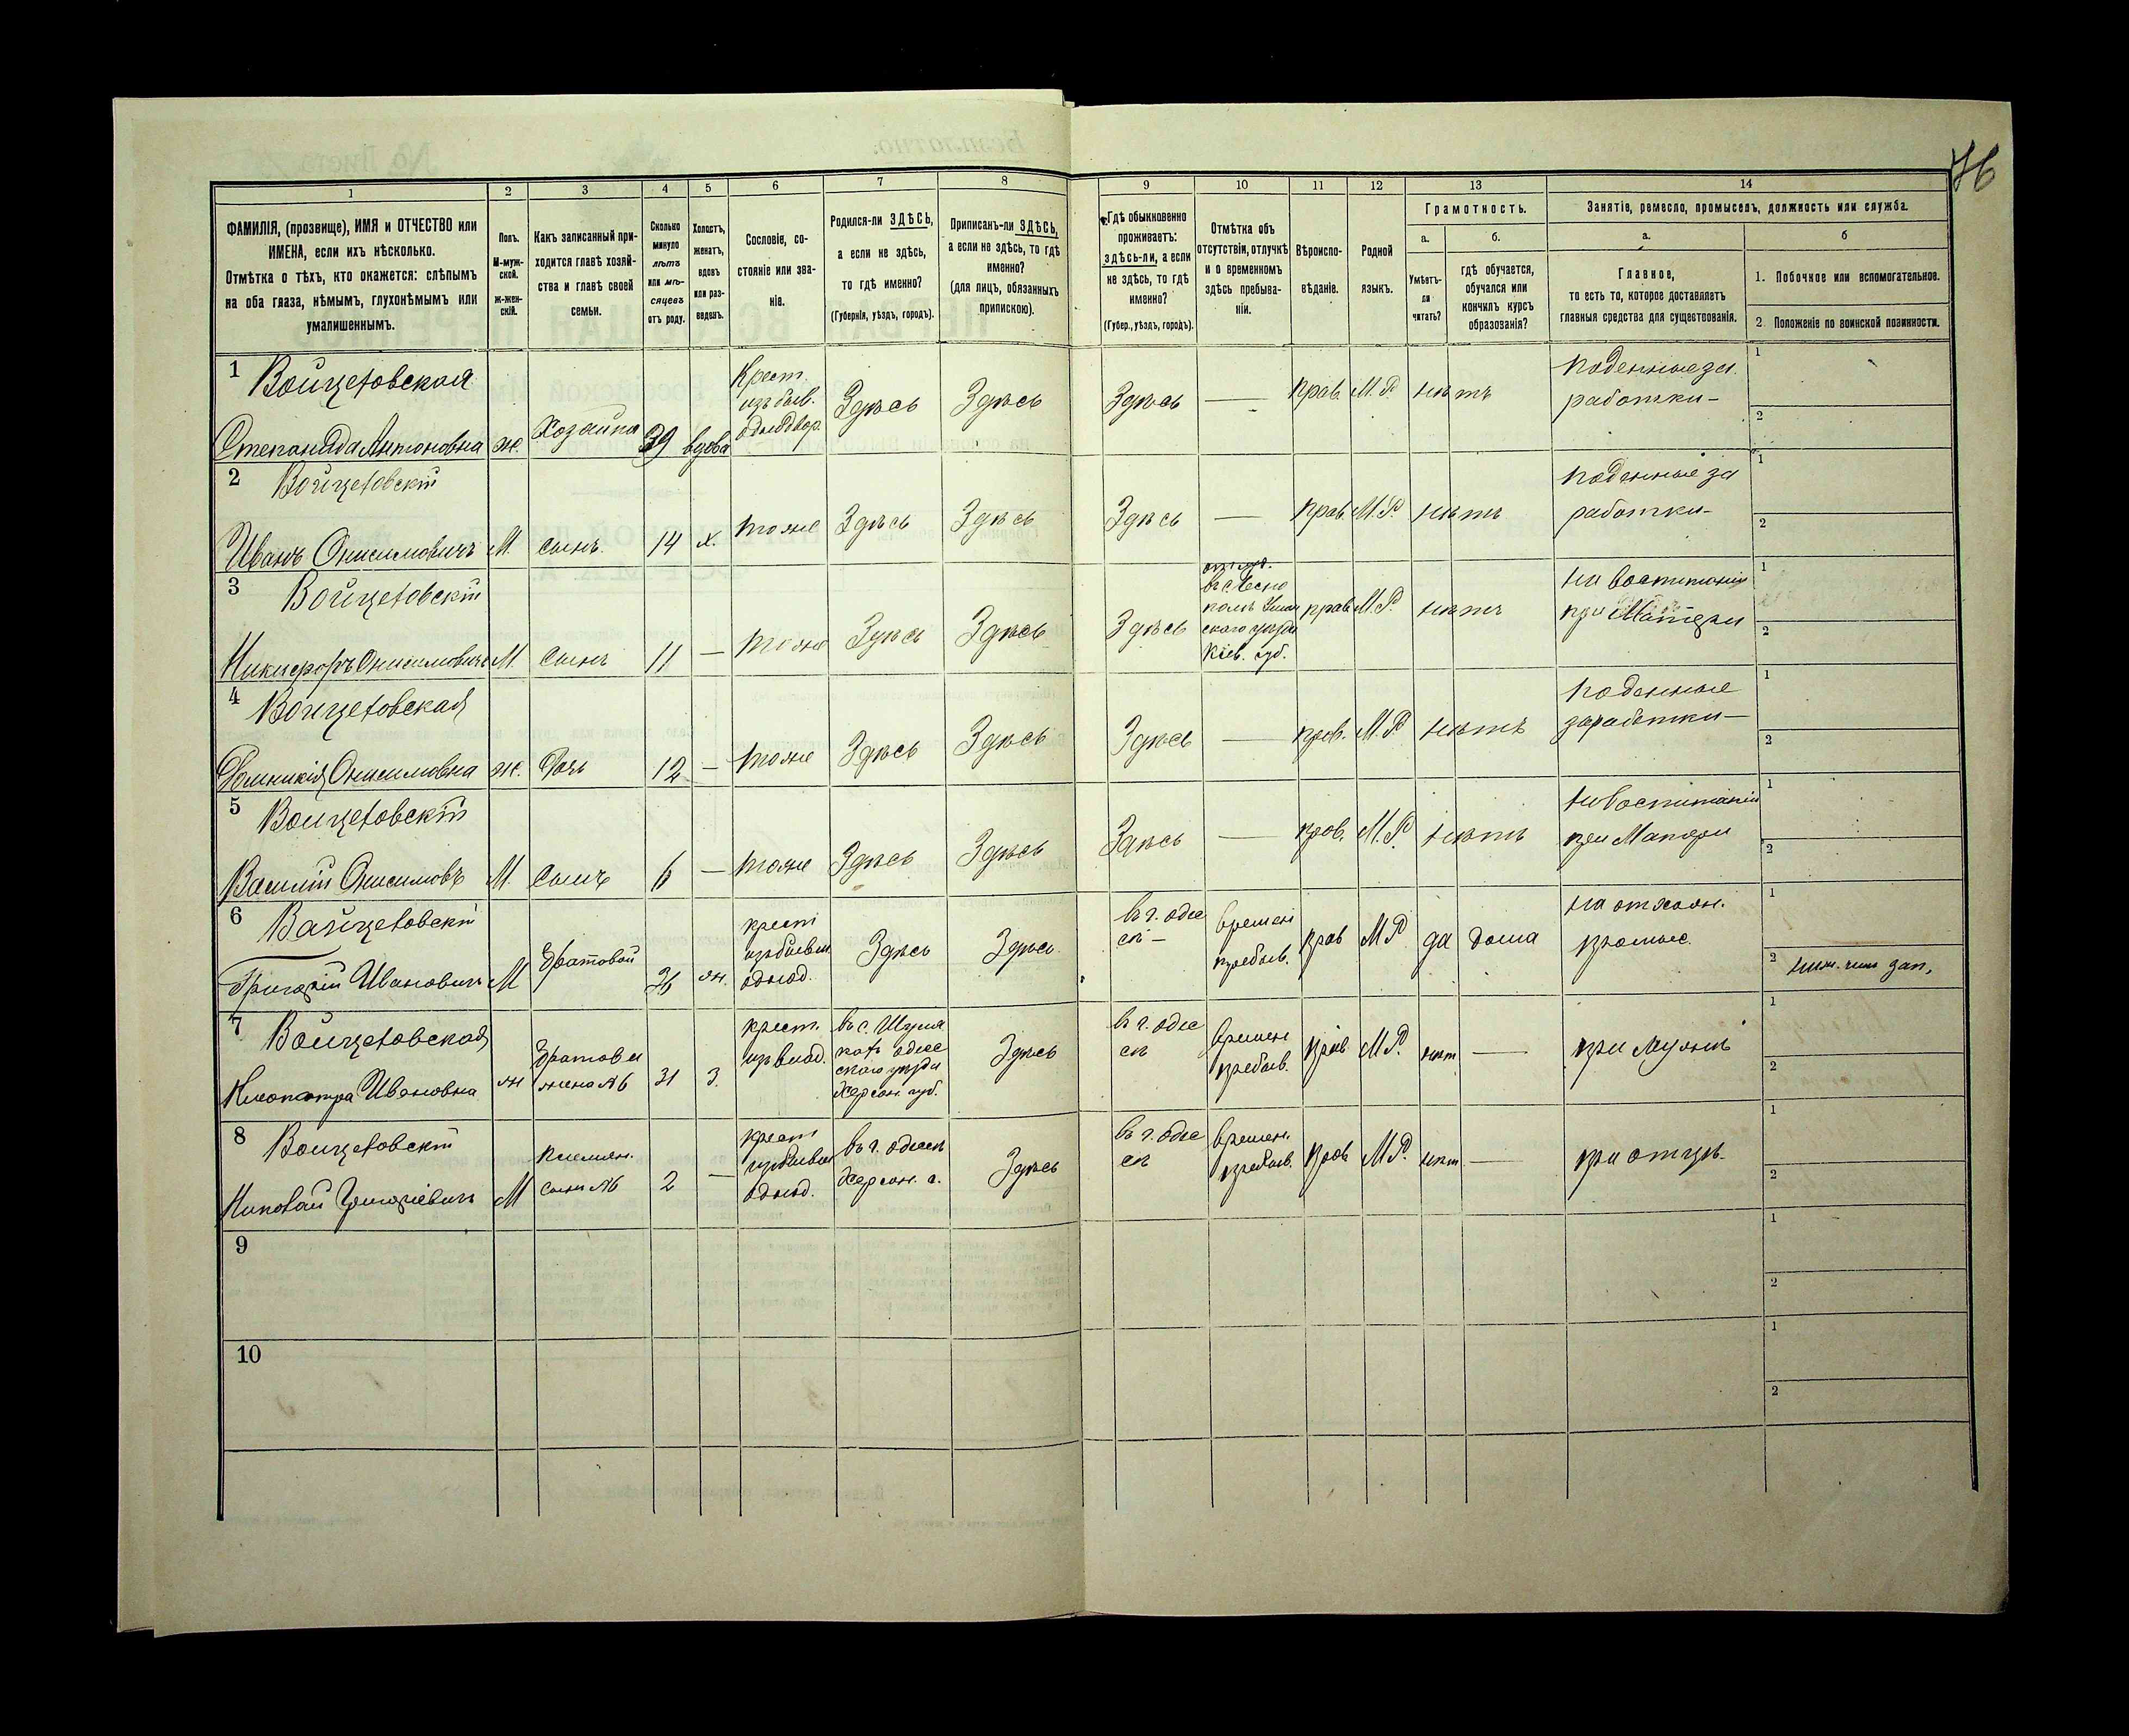 76
1 2 3 4 5 6 7 8 9 10 11 12 13 14
ФАМИЛІЯ, (прозвище), ИМЯ и ОТЧЕСТВО или
ИМЕНА, если ихъ нѣсколько.
Отмѣтка о тѣхъ, кто окажется: слѣпымъ
на оба глаза, нѣмымъ, глухонѣмымъ или
умалишеннымъ.
Полъ.
М-муж-
ской.
ж-жен-
скій.
Какъ записанный при-
ходится главѣ хозяй-
ства и главѣ своей
семьи.
Сколько
минуло
лѣтъ
или мѣ-
сяцевъ
отъ роду.
Холостъ,
женатъ,
вдовъ
или раз-
веденъ.
Сословіе, со-
стояніе или зва-
ніе.
Родился-ли ЗДѢСЬ,
а если не здѣсь,
то гдѣ именно?
(Губернія, уѣздъ, городъ).
Приписанъ-ли ЗДѢСЬ,
а если не здѣсь, то гдѣ
именно?
(для лицъ, обязанныхъ
припискою).
Гдѣ обыкновенно
проживаетъ:
здѣсь-ли, а если
не здѣсь, то гдѣ
именно?
(Губер., уѣздъ, городъ).
Отмѣтка объ
отсутствіи, отлучкѣ
и о временномъ
здѣсь пребыва-
ніи.
Вѣроиспо-
вѣданіе.
Родной
языкъ.
Грамотность.
а.
Умѣетъ-
ли
читать?
б.
гдѣ обучается,
обучался или
кончилъ курсъ
образованія?
Занятіе, ремесло, промыселъ, должность или служба.
а.
Главное,
то есть то, которое доставляетъ
главныя средства для существованія.
б
1. Побочное или вспомогательное.
2. Положеніе по воинской повинности.
1 Войцеховская
Степанида Антоновна ж. Хозяйка 39 вдова
Крест.
изъ быв.
однодвор.
Здѣсь Здѣсь Здѣсь — Прав. М.Р. нѣтъ
поденные за
работки— 1 2
2 Войцеховскій
Иванъ Онисимовичъ М. сынъ 14 х. тоже Здѣсь Здѣсь Здѣсь — Прав. М.Р. нѣтъ
поденные за
работки— 1 2
3 Войцеховскій
Никифоръ Онисимовичъ М. сынъ 11 — тоже Здѣсь Здѣсь Здѣсь
скаго уѣзда
Кіев. губ.
прав. М.Р. нѣтъ
на воспитаніи
при Матери 1 2
4 Войцеховская
Домникія Онисимовна ж. Дочь 12 — тоже Здѣсь Здѣсь Здѣсь — прав. М.Р. нѣтъ
поденные
заработки— 1 2
5 Войцеховскій
Василій Онисимовъ М. Сынъ 6 — тоже Здѣсь Здѣсь Здѣсь — прав. М.Р. нѣтъ
на воспитаніи
при Матери 1 2
6 Войцеховскій
Григорій Ивановичъ М 36 ж.
крест
изъ бывш
однод.
Здѣсь Здѣсь
въ г. Одес
сѣ —
времен
пребыв.
прав МР да дома
на отхож.
промыс. 1 2 ниж. чин зап.
7 Войцеховская
Клеопатра Ивановна ж
жена №6 31 З.
крест.
въ с.
одес
скаго уѣзда
Херсон. губ.
Здѣсь
въ г. Одес
сѣ
времен
пребыв.
прав МР. нѣт —
при мужѣ 1 2
8 Войцеховскій
Николай Григоріевичъ М
племян.
сынъ №6 2 —
крест
изъ бывш
однод.
въ г. Одессѣ
Херсон. г.
Здѣсь
въ г. Одес
сѣ
времен.
пребыв.
прав МР. нѣт —
при отцѣ 1 2
9 1 2
10 1 2